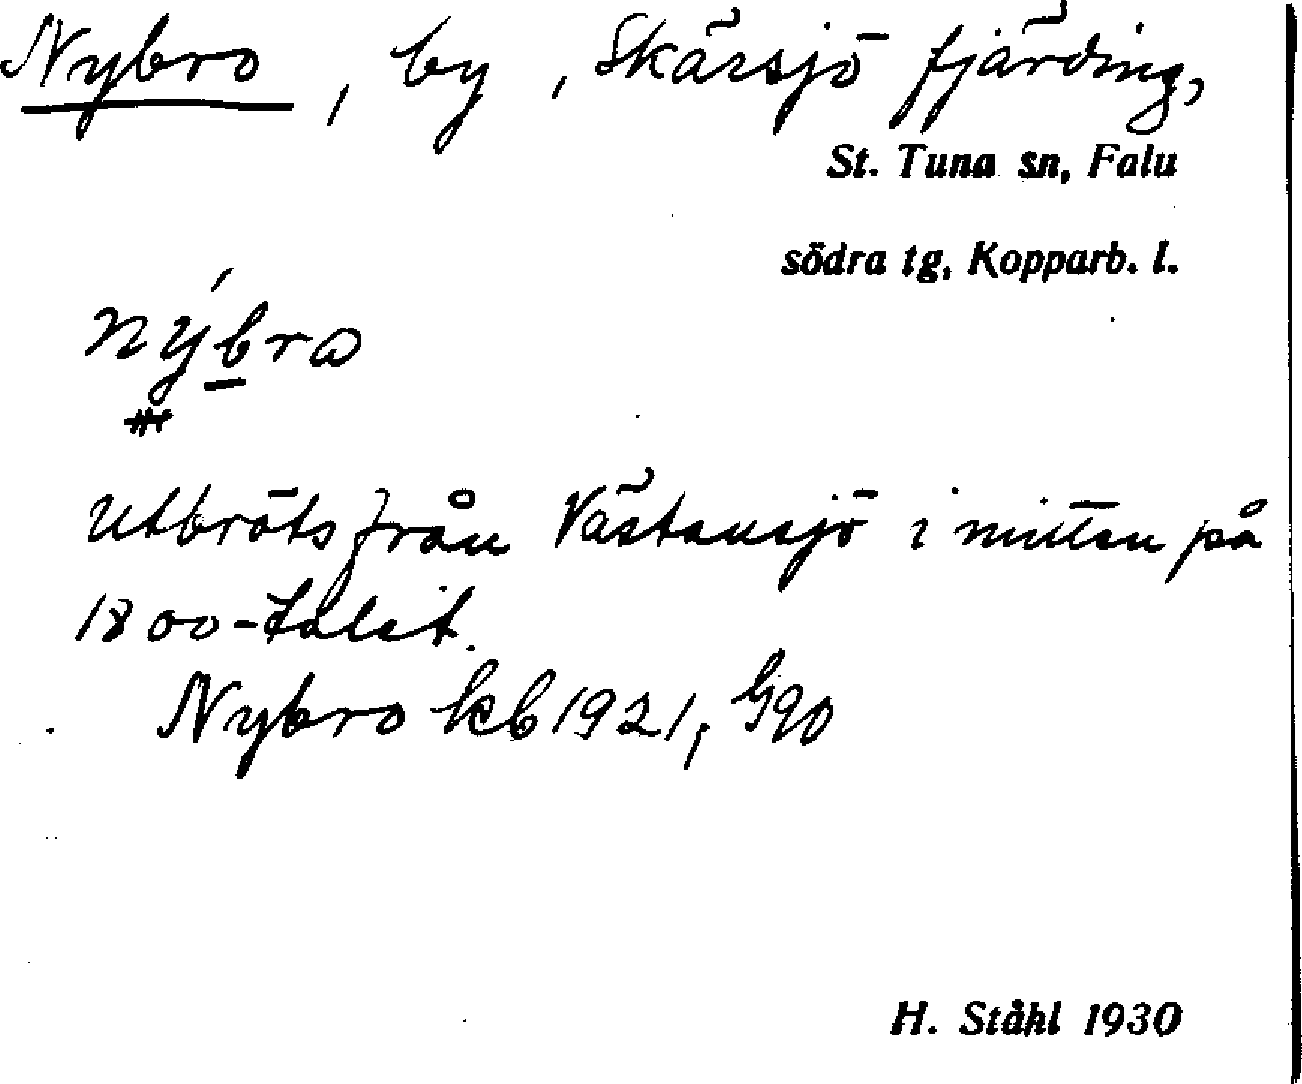 Nybro, by, Skärsjö fjärding,
St. Tuna sn, Falu
södra tg, Kopparb. l.
nýbro
Utbröts från Västansjö i mitten på
1800-talet.
Nybro kb 1921, G90
H. Ståhl 1930